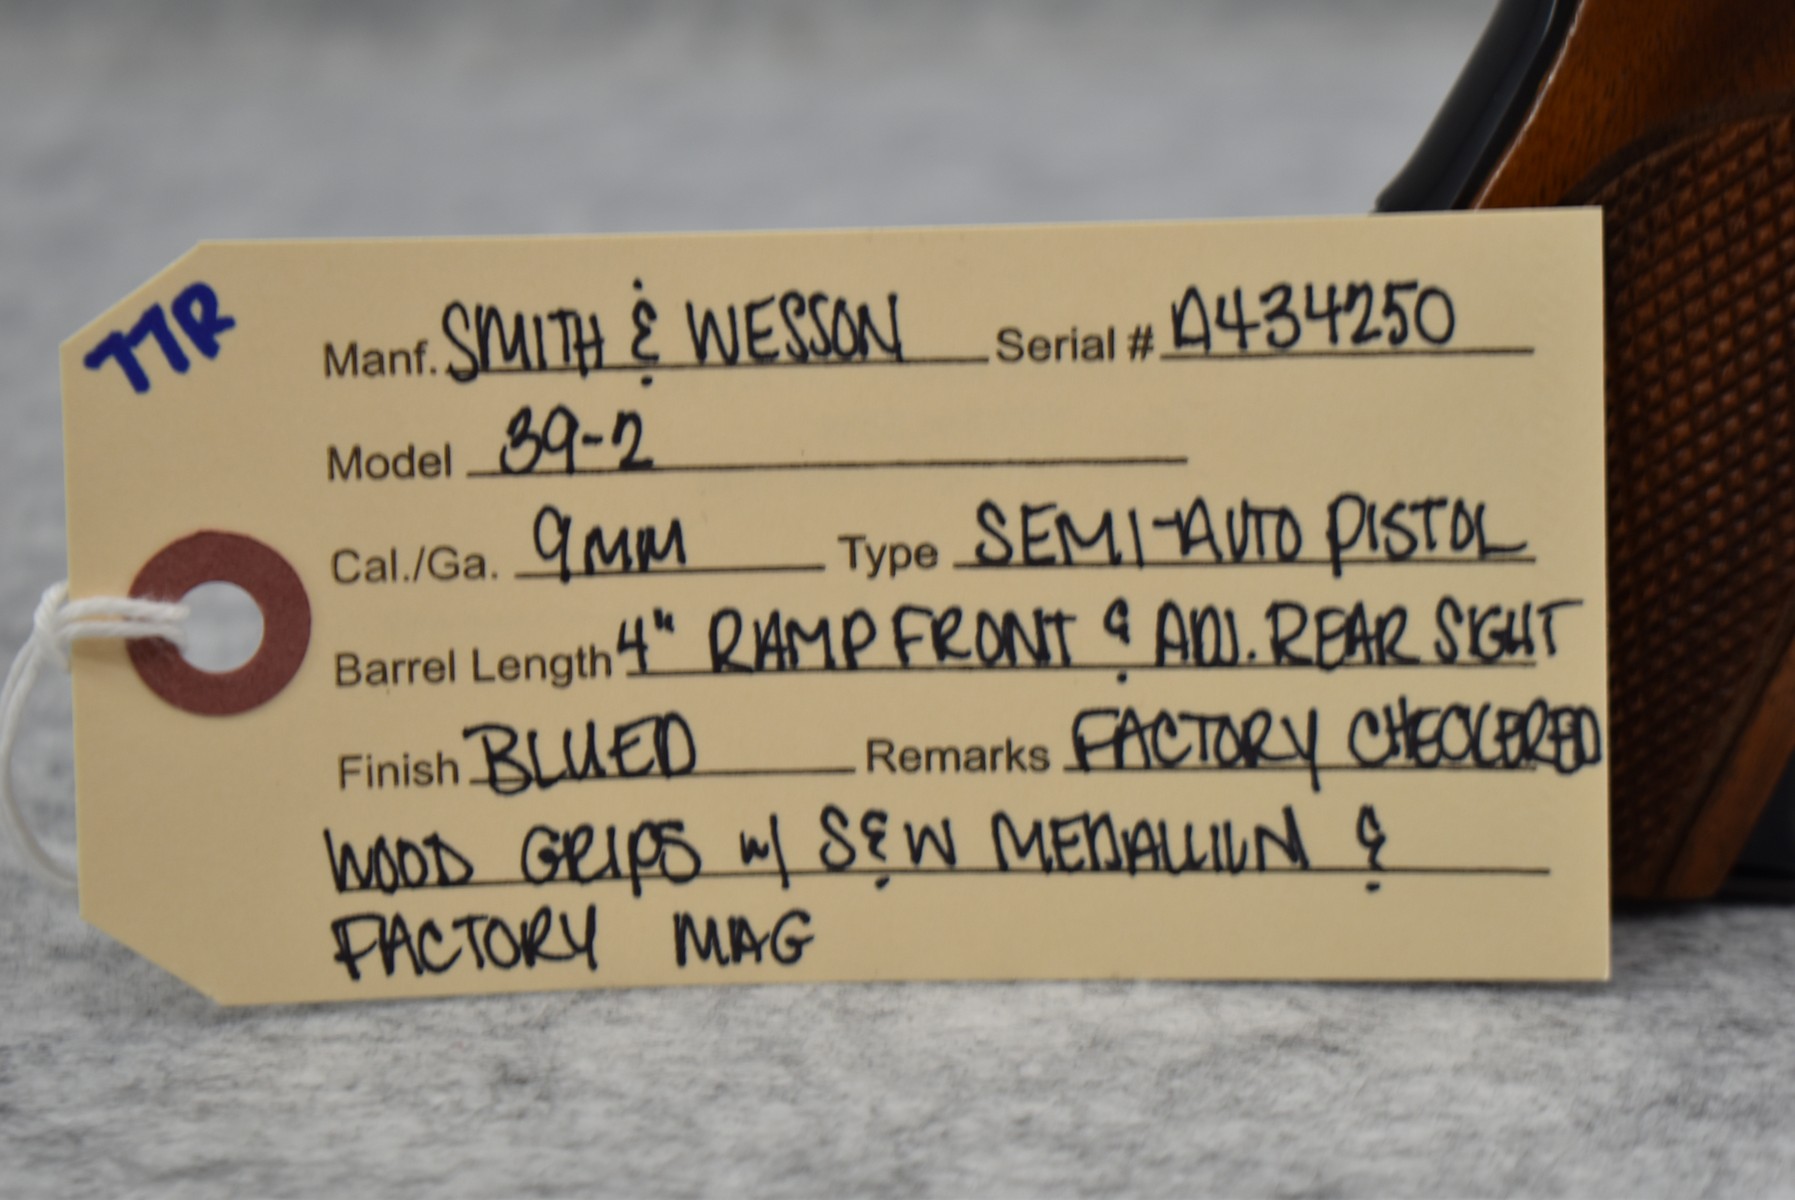 77R
Manf. SMITH & WESSON Serial # A434250
Model 39-2
Cal./Ga. 9MM Type SEMI-AUTO PISTOL
Barrel Length 4" RAMP FRONT & ADJ. REAR SIGHT
Finish BLUED Remarks FACTORY CHECKERED
WOOD GRIPS w/ S&W MEDALLION &
FACTORY MAG